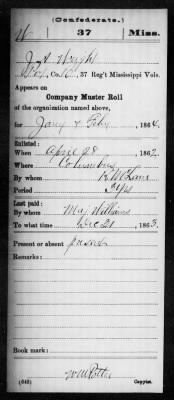 (Confederate.)
W 37 Miss.
J A Wright
Co. 37 Reg't Mississippi Vols.
Appears on
Company Muster Roll
of the organization named above,
for Jany & Feby, 1864.
Enlisted:
When April 28, 1862.
Where Columbus
By whom
Period 3 yrs
Last paid:
By whom Maj Williams
To what time Dec 31, 1863.
Present or absent present
Remarks:
Book mark:
(642) Copyist.